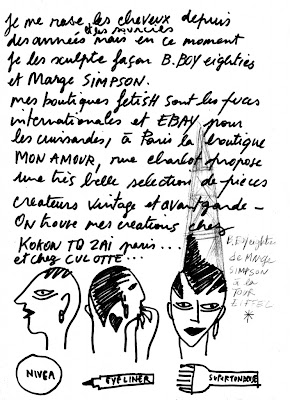 Je me rase les cheveux depuis
et les sourcils
des années mais en ce moment
Je les sculpte façon B.BOY eighties
et Marge SIMPSON.
mes boutiques fetiSH sont les puces
internationales et EBAY pour
les cuissardes, à Paris la boutique
MON AMOUR, rue charlot propose
une très belle selection de pièces
createurs vintage et avant garde -
ON trouve mes creations chez
KOKON TO ZAI paris...
et chez CULOTTE...
B.BOY eighties
de Marge
SIMPSON
à la
TOUR
EIFFEL
*
NIVEA
EYELINER
SUPERTONDEUSE